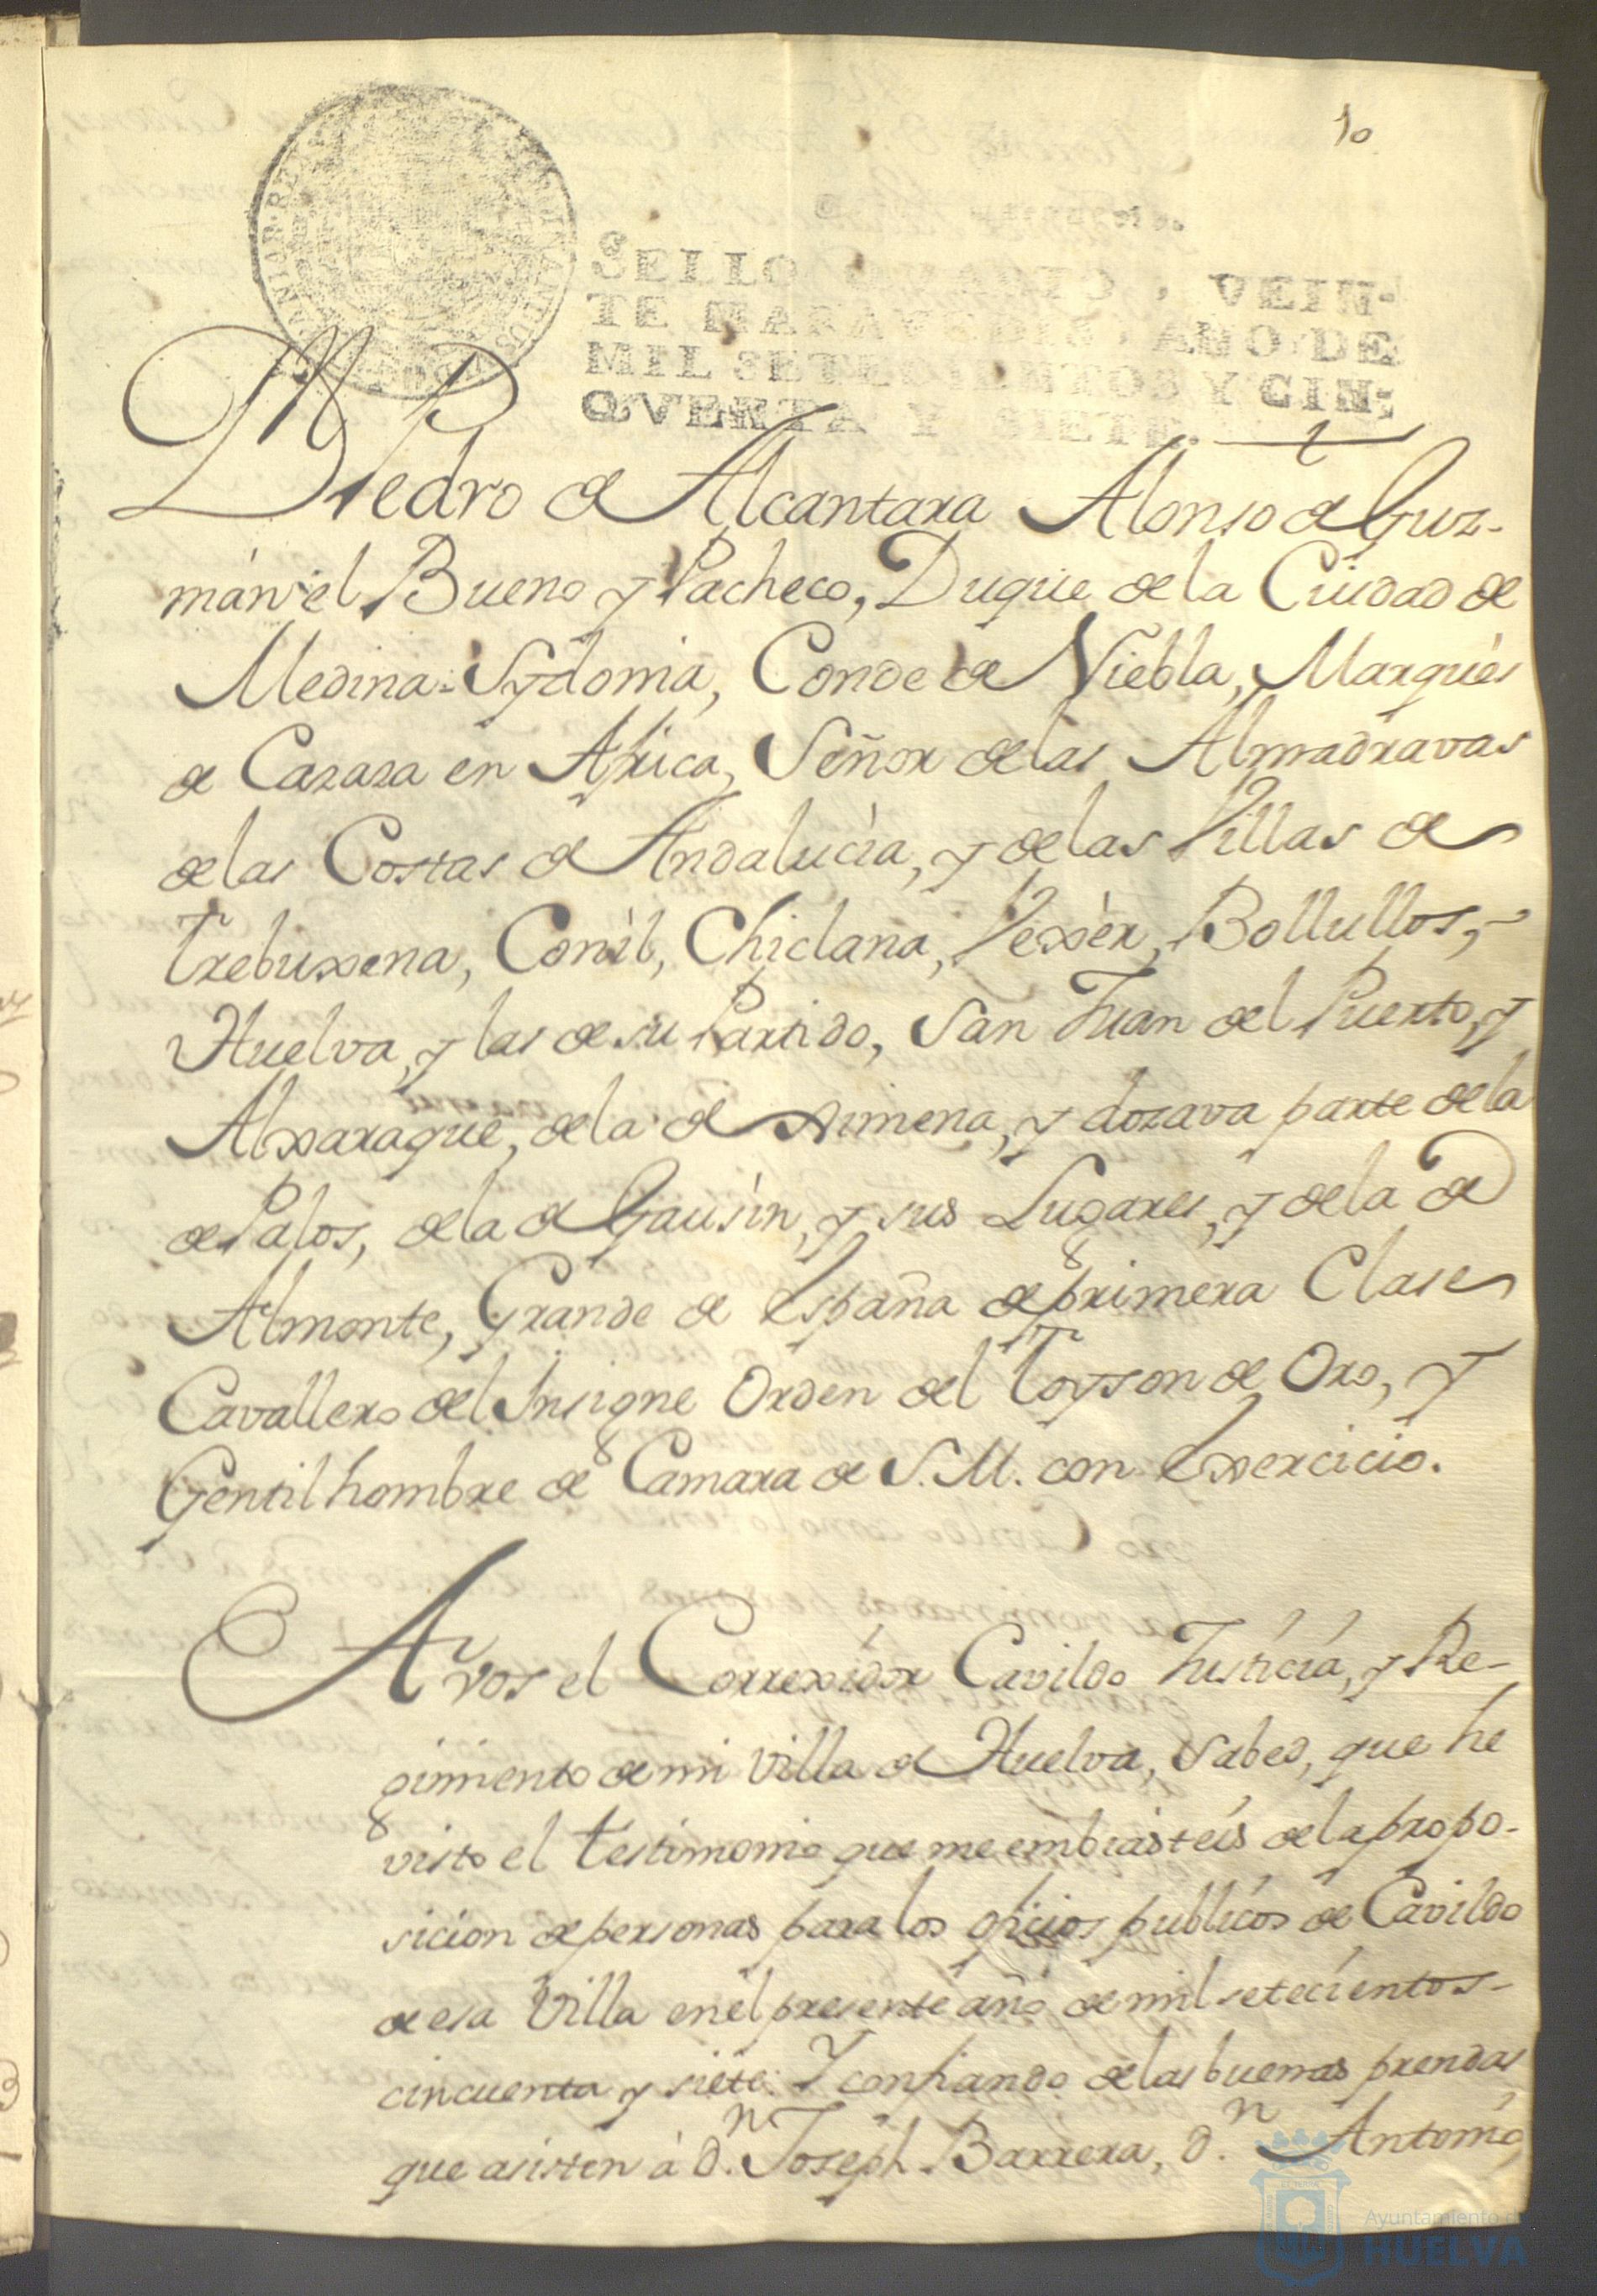 10
SELLO QVARTO, VEIN-
TE MARAVEDIS, AÑO DE
MIL SETECIENTOS Y CIN-
QVENTA Y SIETE.
Dn Pedro de Alcantara Alonso de Guz-
mán el Bueno y Pacheco, Duque de la Ciudad de
Medina-Sydonia, Conde de Niebla, Marqués
de Cazaza en Africa, Señor de las Almadravas
de las Costas de Andalucia, y de las Villas de
Trebuxena, Conìl, Chiclana, Vexèr, Bollullos,
Huelva, y las de su Partido, San Juan del Puerto, y
Alxaraque, de la de Ximena, y dozava parte de la
de Palos, de la de Gausìn, y sus Lugares, y de la de
Almonte, Grande de España de primera Clase
Cavallero del Insigne Orden del Toyson de Oro, y
Gentilhombre de Camara de S. M. con Exercicio.
A vos el Correxidor Cavildo Justicia, y Re-
gimiento de mi Villa de Huelva, Sabed, que he
visto el testimonio que me embiasteis de la propo-
sicion de personas para los oficios publicos de Cavildo
de esa Villa en el presente año de mil setecientos
cincuenta y siete: Y confiando de las buenas prendas
que asisten à D.n Joseph Barrera, D.n Antonio
Ayuntamiento de
HUELVA